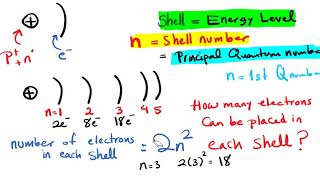 Shell = Energy Level
n = Shell number
= Principal Quantum number
n = 1st Q number
P⁺
+ n°
e⁻
n=1 2 3 4 5
2e⁻ 8e⁻ 18e⁻
How many electrons
Can be placed in
each shell?
number of electrons
in each shell
= 2n²
n=3 2(3)² = 18